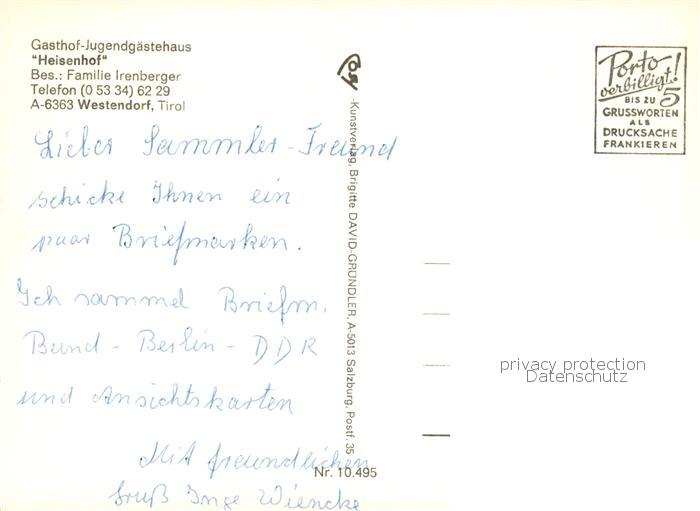 Gasthof-Jugendgästehaus
"Heisenhof"
Bes.: Familie Irenberger
Telefon (0 53 34) 62 29
A-6363 Westendorf, Tirol
Lieber Sammler-Freund
schicke Ihnen ein
paar Briefmarken.
Ich sammel Briefm.
Bund - Berlin - DDR
und Ansichtskarten
Mit freundlichen
Gruß Inge Wiencke
Kunstverlag, Brigitte DAVID-GRÜNDLER, A-5013 Salzburg, Postf. 35
Nr. 10.495
Porto
verbilligt!
BIS ZU 5
GRUSSWORTEN
ALS
DRUCKSACHE
FRANKIEREN
privacy protection
Datenschutz